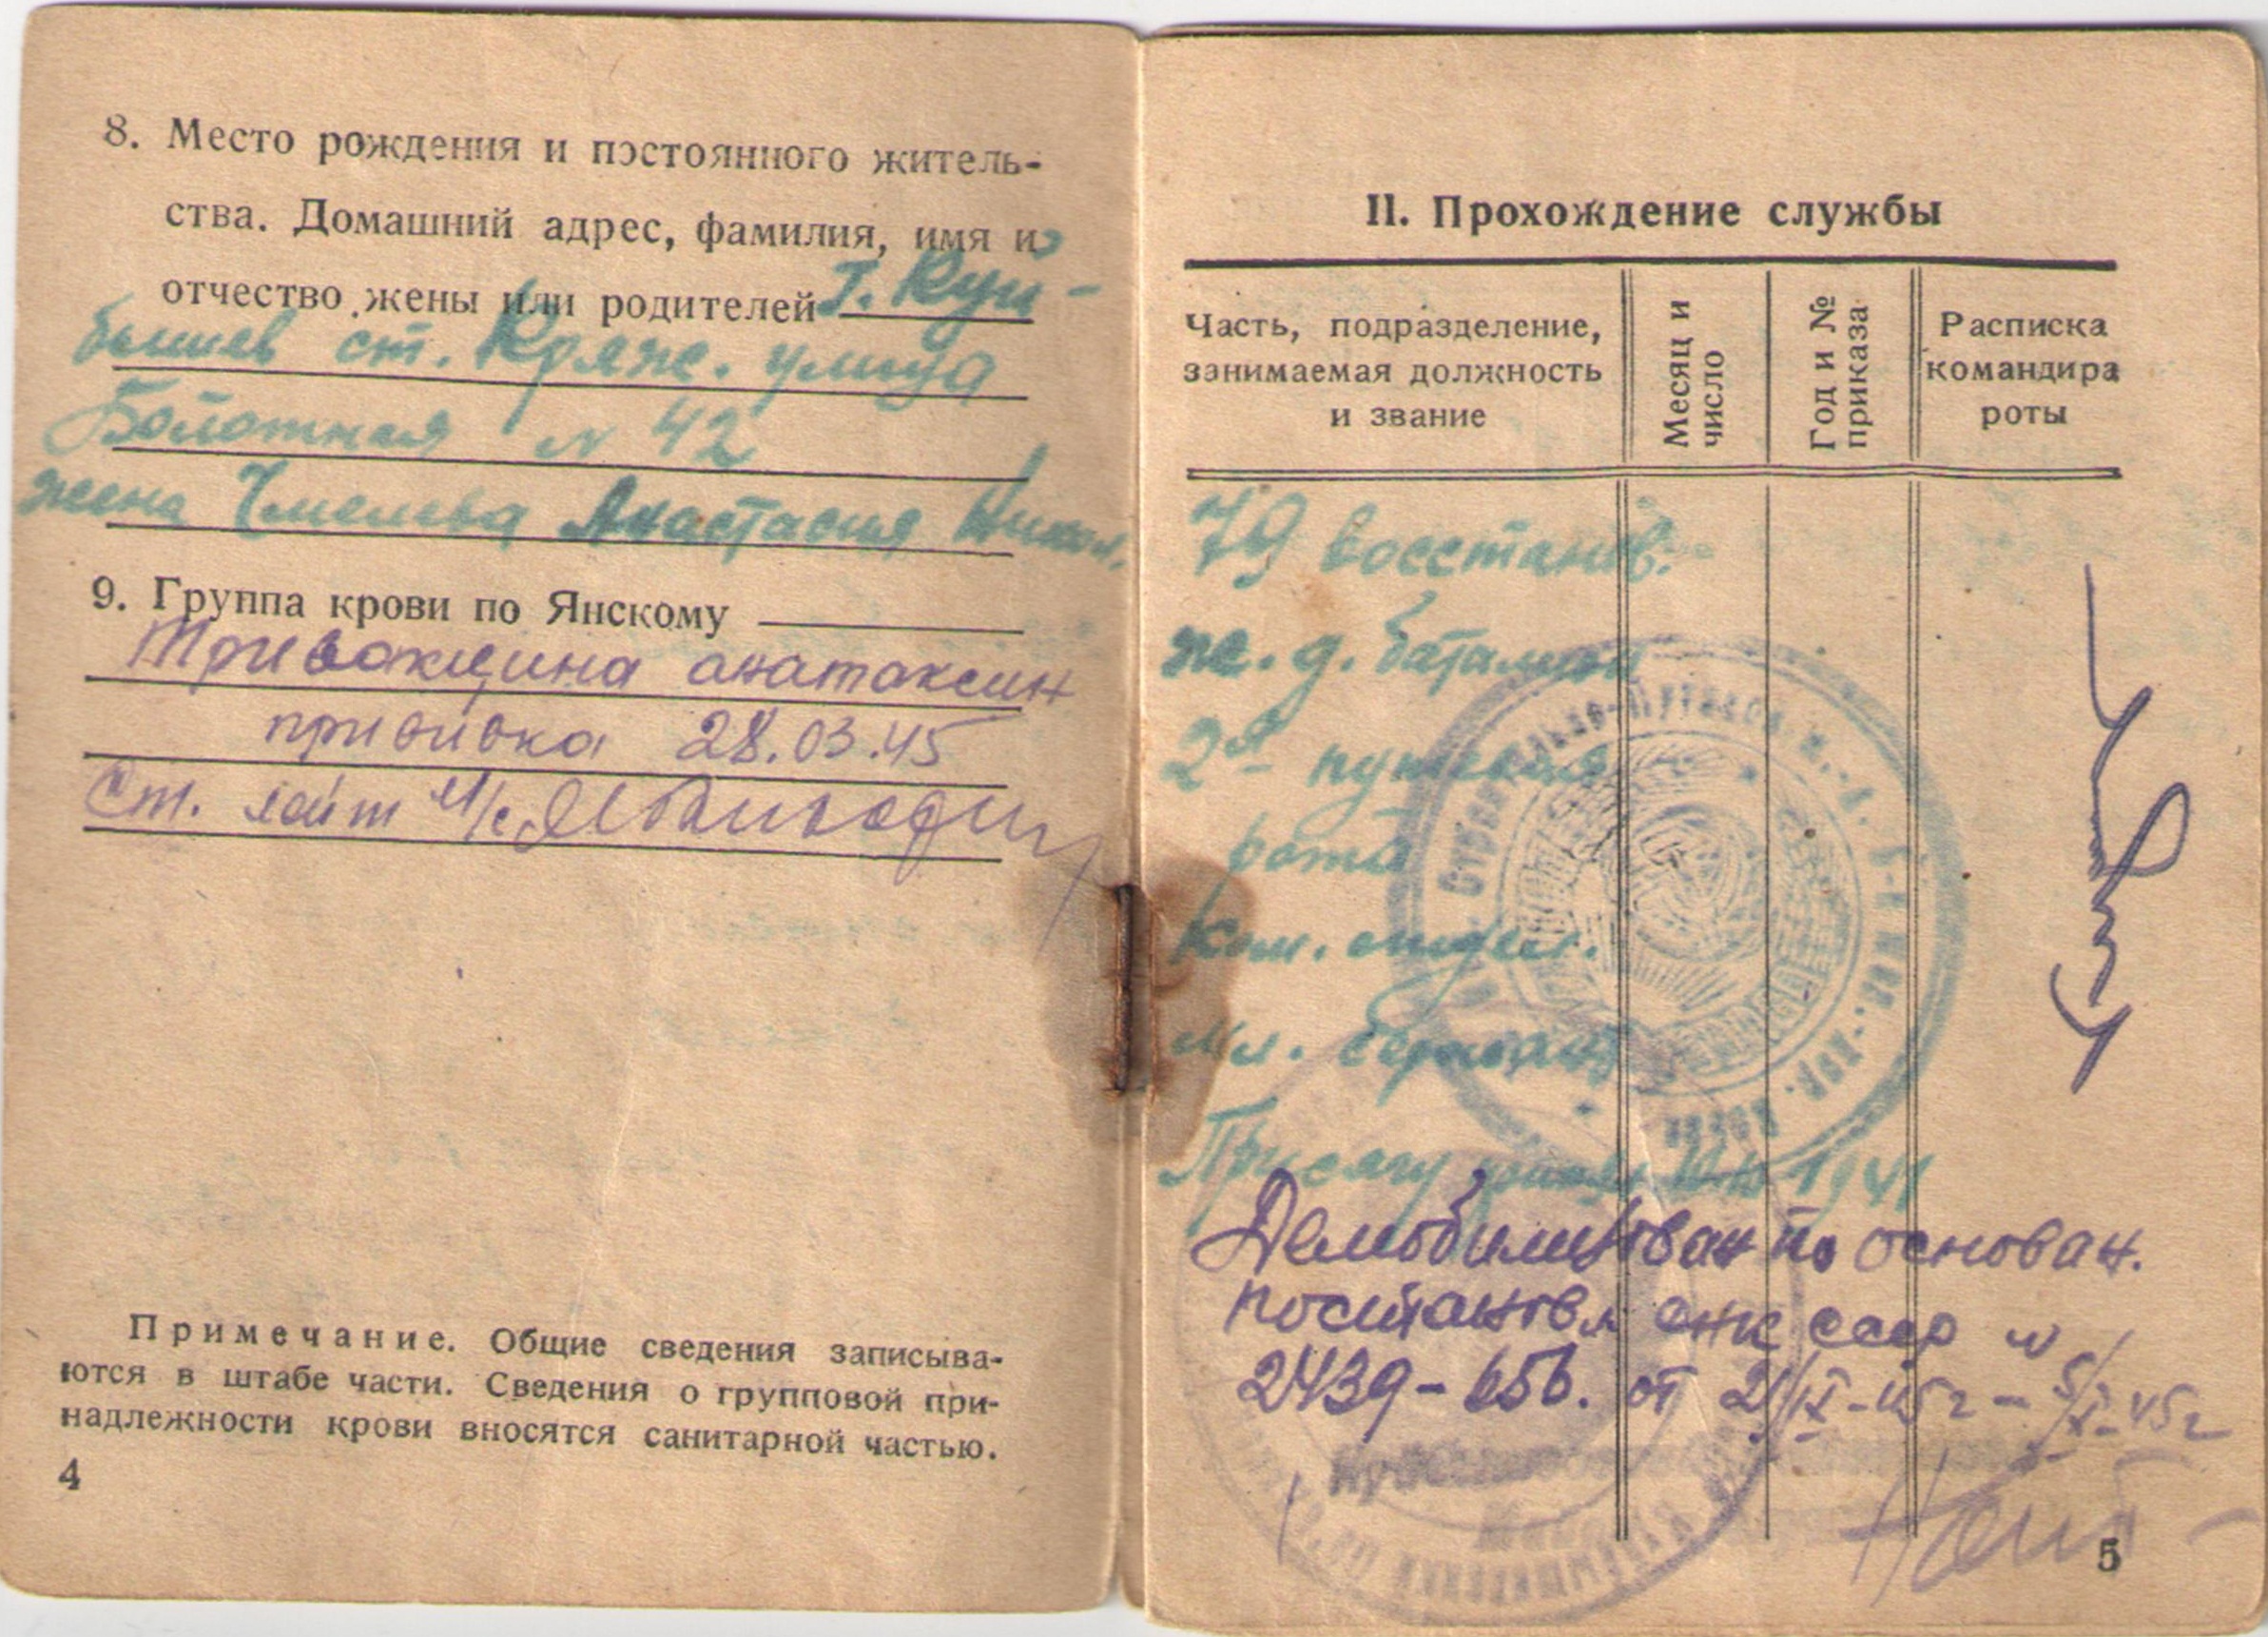 8. Место рождения и постоянного житель-
ства. Домашний адрес, фамилия, имя и
отчество жены или родителей г. Куй-
бышев ст. Кряж. улица
Болотная N 42
жена Чмелева Анастасия Никол.
9. Группа крови по Янскому
Тривакцина анатаксин
прививка 28.03.45
Ст. лейт м/с
Примечание. Общие сведения записыва-
ются в штабе части. Сведения о групповой при-
надлежности крови вносятся санитарной частью.
4
II. Прохождение службы
Часть, подразделение,
занимаемая должность
и звание
Месяц и
число
Год и №
приказа
Расписка
командира
роты
79 восстанов.
ж. д. батальон
2я путевая
рота
Ком. отдел.
мл. сержант
Присягу принял 1941
Демобилизован по основан.
постановл СНК СССР N
2439-65б. от 21/IX-45г - 5/X-45г
5